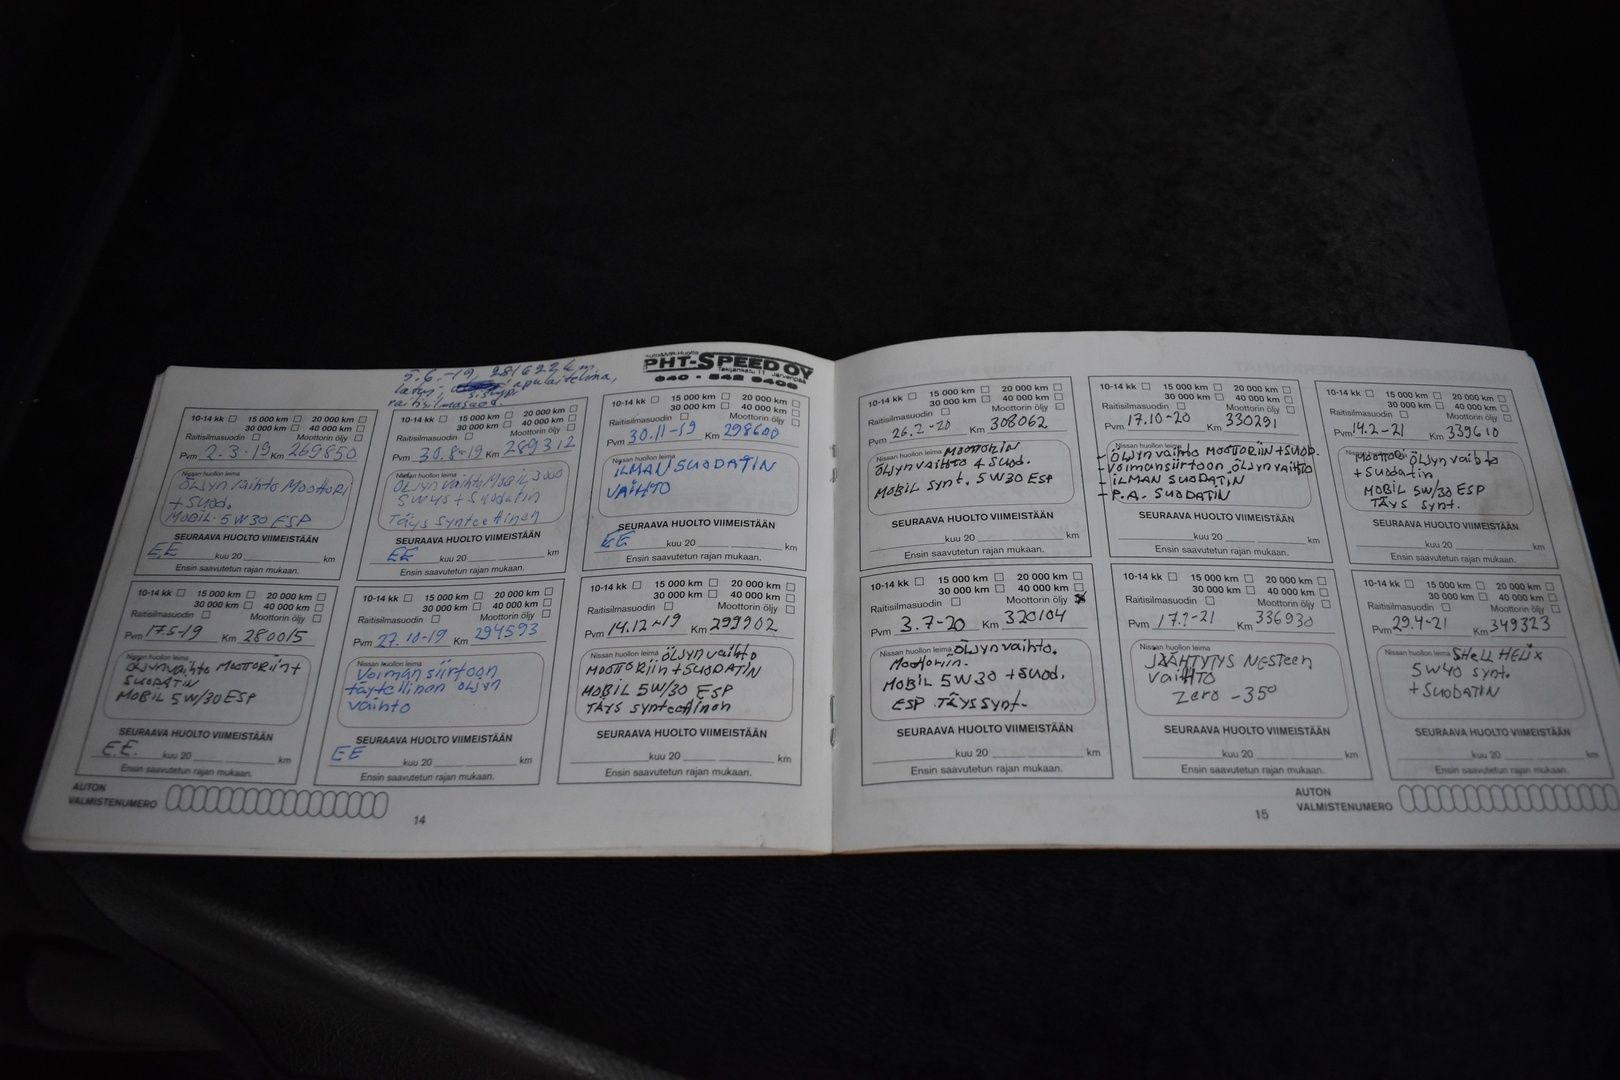 5.6.-19, 281622 km.
apulaitehihna,
raitisilmasuod.
Auto&MP-Huolto
PHT-SPEED OY
Takojankatu 11 Järvenpää
040 - 542 9409
10-14 kk 15 000 km 20 000 km
30 000 km 40 000 km
Raitisilmasuodin Moottorin öljy
Pvm 2.3.-19 Km 269850
Nissan huollon leima
ÖLJYN VAIHTO MOOTTORI
+ SUOD.
MOBIL 5W30 ESP
SEURAAVA HUOLTO VIIMEISTÄÄN
EE kuu 20 km
Ensin saavutetun rajan mukaan.
10-14 kk 15 000 km 20 000 km
30 000 km 40 000 km
Raitisilmasuodin Moottorin öljy
Pvm 30.8-19 Km 289312
Nissan huollon leima
ÖLJYN VAIHTO MOBIL 3000
5W45 + SUODATIN
TÄYS SYNTEETTINEN
SEURAAVA HUOLTO VIIMEISTÄÄN
EE kuu 20 km
Ensin saavutetun rajan mukaan.
10-14 kk 15 000 km 20 000 km
30 000 km 40 000 km
Raitisilmasuodin Moottorin öljy
Pvm 30.11-19 Km 298600
Nissan huollon leima
ILMAN SUODATIN
VAIHTO
SEURAAVA HUOLTO VIIMEISTÄÄN
EE kuu 20 km
Ensin saavutetun rajan mukaan.
10-14 kk 15 000 km 20 000 km
30 000 km 40 000 km
Raitisilmasuodin Moottorin öljy
Pvm 17.5-19 Km 280015
Nissan huollon leima
ÖLJYNVAIHTO MOOTTORIIN +
SUODATIN
MOBIL 5W/30 ESP
SEURAAVA HUOLTO VIIMEISTÄÄN
E.E. kuu 20 km
Ensin saavutetun rajan mukaan.
10-14 kk 15 000 km 20 000 km
30 000 km 40 000 km
Raitisilmasuodin Moottorin öljy
Pvm 27.10-19 Km 294593
Nissan huollon leima
Voiman siirtoon
täytellinan öljyn
vaihto
SEURAAVA HUOLTO VIIMEISTÄÄN
EE kuu 20 km
Ensin saavutetun rajan mukaan.
10-14 kk 15 000 km 20 000 km
30 000 km 40 000 km
Raitisilmasuodin Moottorin öljy
Pvm 14.12-19 Km 299902
Nissan huollon leima ÖLJYN VAIHTO
MOOTTORIIN + SUODATIN
MOBIL 5W/30 ESP
TÄYS SYNTEETTINEN
SEURAAVA HUOLTO VIIMEISTÄÄN
kuu 20 km
Ensin saavutetun rajan mukaan.
AUTON
VALMISTENUMERO
14
10-14 kk 15 000 km 20 000 km
30 000 km 40 000 km
Raitisilmasuodin Moottorin öljy
Pvm 26.2-20 Km 308062
Nissan huollon leima MOOTTORIN
ÖLJYN VAIHTO & SUOD.
MOBIL SYNT. 5W30 ESP
SEURAAVA HUOLTO VIIMEISTÄÄN
kuu 20 km
Ensin saavutetun rajan mukaan.
10-14 kk 15 000 km 20 000 km
30 000 km 40 000 km
Raitisilmasuodin Moottorin öljy
Pvm 17.10-20 Km 330291
Nissan huollon leima
- ÖLJYN VAIHTO MOOTTORIIN + SUOD.
- VOIMANSIIRTOON ÖLJYN VAIHTO
- ILMAN SUODATIN
- P.A. SUODATIN
SEURAAVA HUOLTO VIIMEISTÄÄN
kuu 20 km
Ensin saavutetun rajan mukaan.
10-14 kk 15 000 km 20 000 km
30 000 km 40 000 km
Raitisilmasuodin Moottorin öljy
Pvm 14.2-21 Km 339610
MOOTTORI ÖLJYN VAIHTO
+ SUODATIN
MOBIL 5W/30 ESP
TÄYS SYNT.
SEURAAVA HUOLTO VIIMEISTÄÄN
kuu 20 km
Ensin saavutetun rajan mukaan.
10-14 kk 15 000 km 20 000 km
30 000 km 40 000 km
Raitisilmasuodin Moottorin öljy x
Pvm 3.7-20 Km 320104
Nissan huollon leima ÖLJYN VAIHTO.
MOOTTORIN.
MOBIL 5W30 + SUOD.
ESP TÄYS SYNT.
SEURAAVA HUOLTO VIIMEISTÄÄN
kuu 20 km
Ensin saavutetun rajan mukaan.
10-14 kk 15 000 km 20 000 km
30 000 km 40 000 km
Raitisilmasuodin Moottorin öljy
Pvm Km 336930
Nissan huollon leima
JÄÄHTYTYS NESTEEN
VAIHTO
Zero -35°
SEURAAVA HUOLTO VIIMEISTÄÄN
kuu 20 km
Ensin saavutetun rajan mukaan.
10-14 kk 15 000 km 20 000 km
30 000 km 40 000 km
Raitisilmasuodin Moottorin öljy
Pvm 29.4-21 Km 349323
Nissan huollon leima SHELL HELIX
5W40 SYNT.
+ SUODATIN
SEURAAVA HUOLTO VIIMEISTÄÄN
kuu 20 km
Ensin saavutetun rajan mukaan.
15
AUTON
VALMISTENUMERO